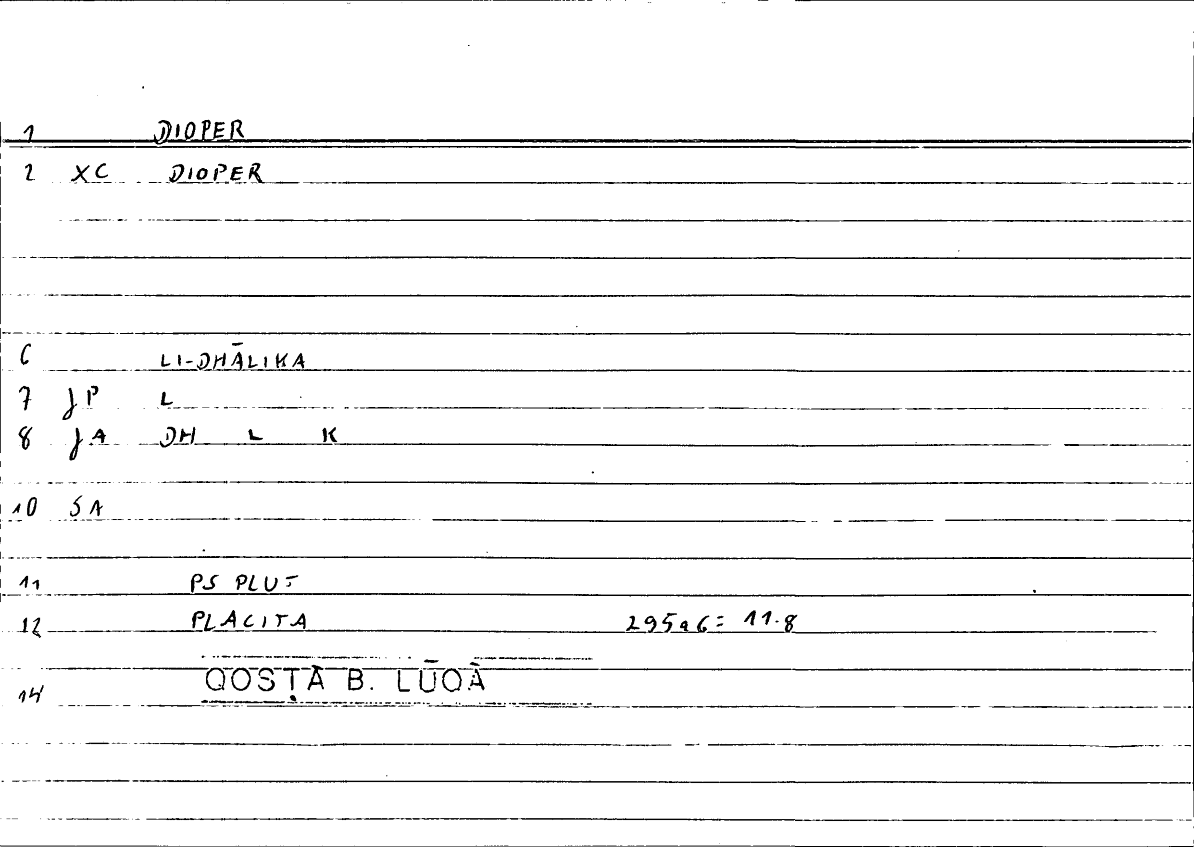 1 DIOPER
2 XC DIOPER
6 LI-DHĀLIKA
7 JP L
8 JA DH L K
10 SA
11 PS PLUT
12 PLACITA 295a6 = 11.8
14 QOSṬĀ B. LŪQĀ